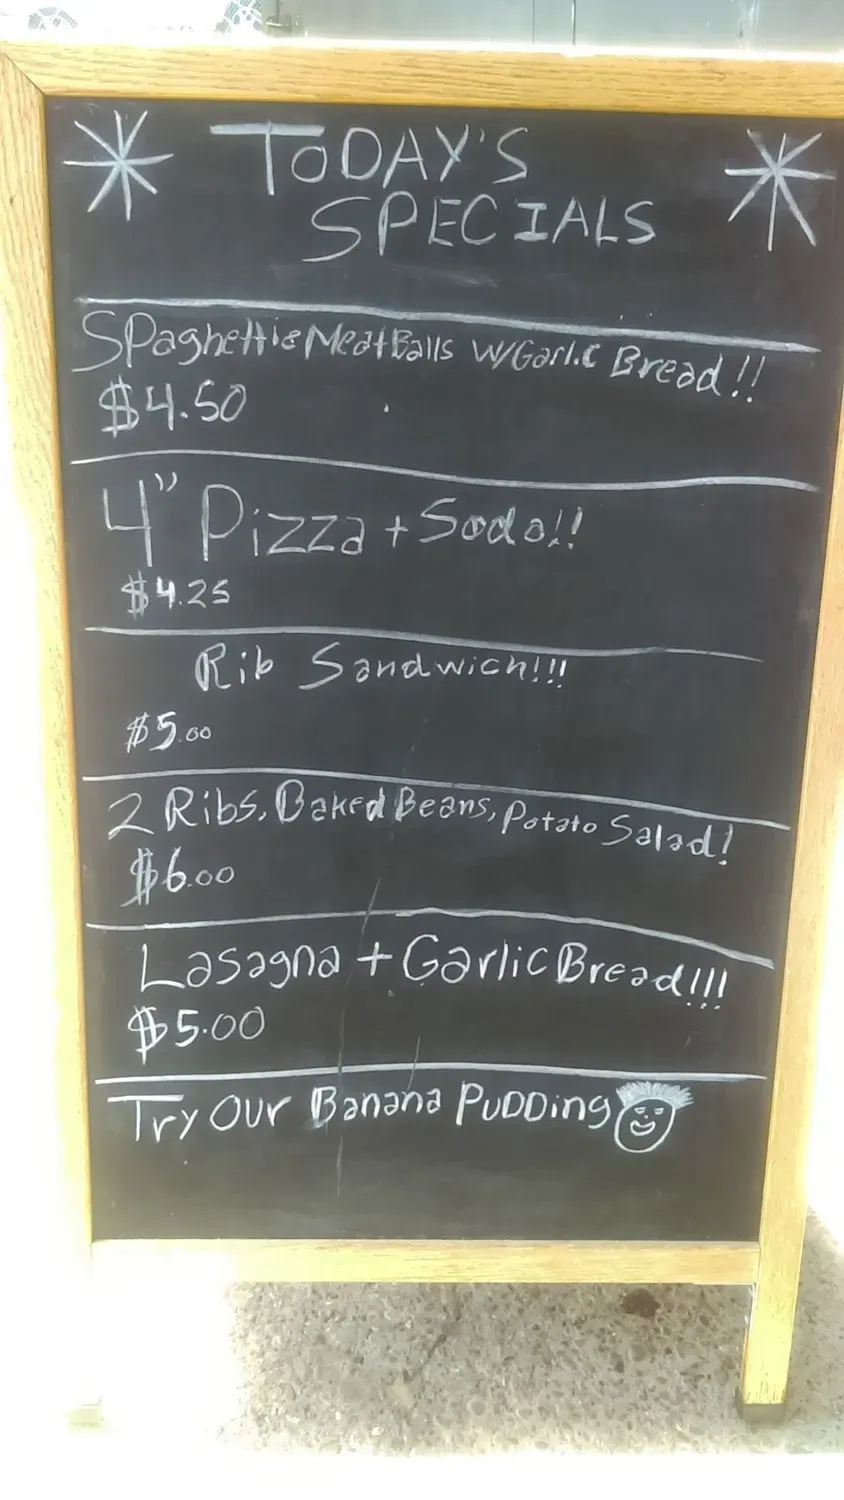 TODAY'S
SPECIALS
Spaghettie MeatBalls w/Garlic Bread!!
$4.50
4" Pizza + Soda!!
$4.25
Rib Sandwich!!!
$5.00
2 Ribs, Baked Beans, Potato Salad!
$6.00
Lasagna + Garlic Bread!!!
$5.00
Try Our Banana PuDDing